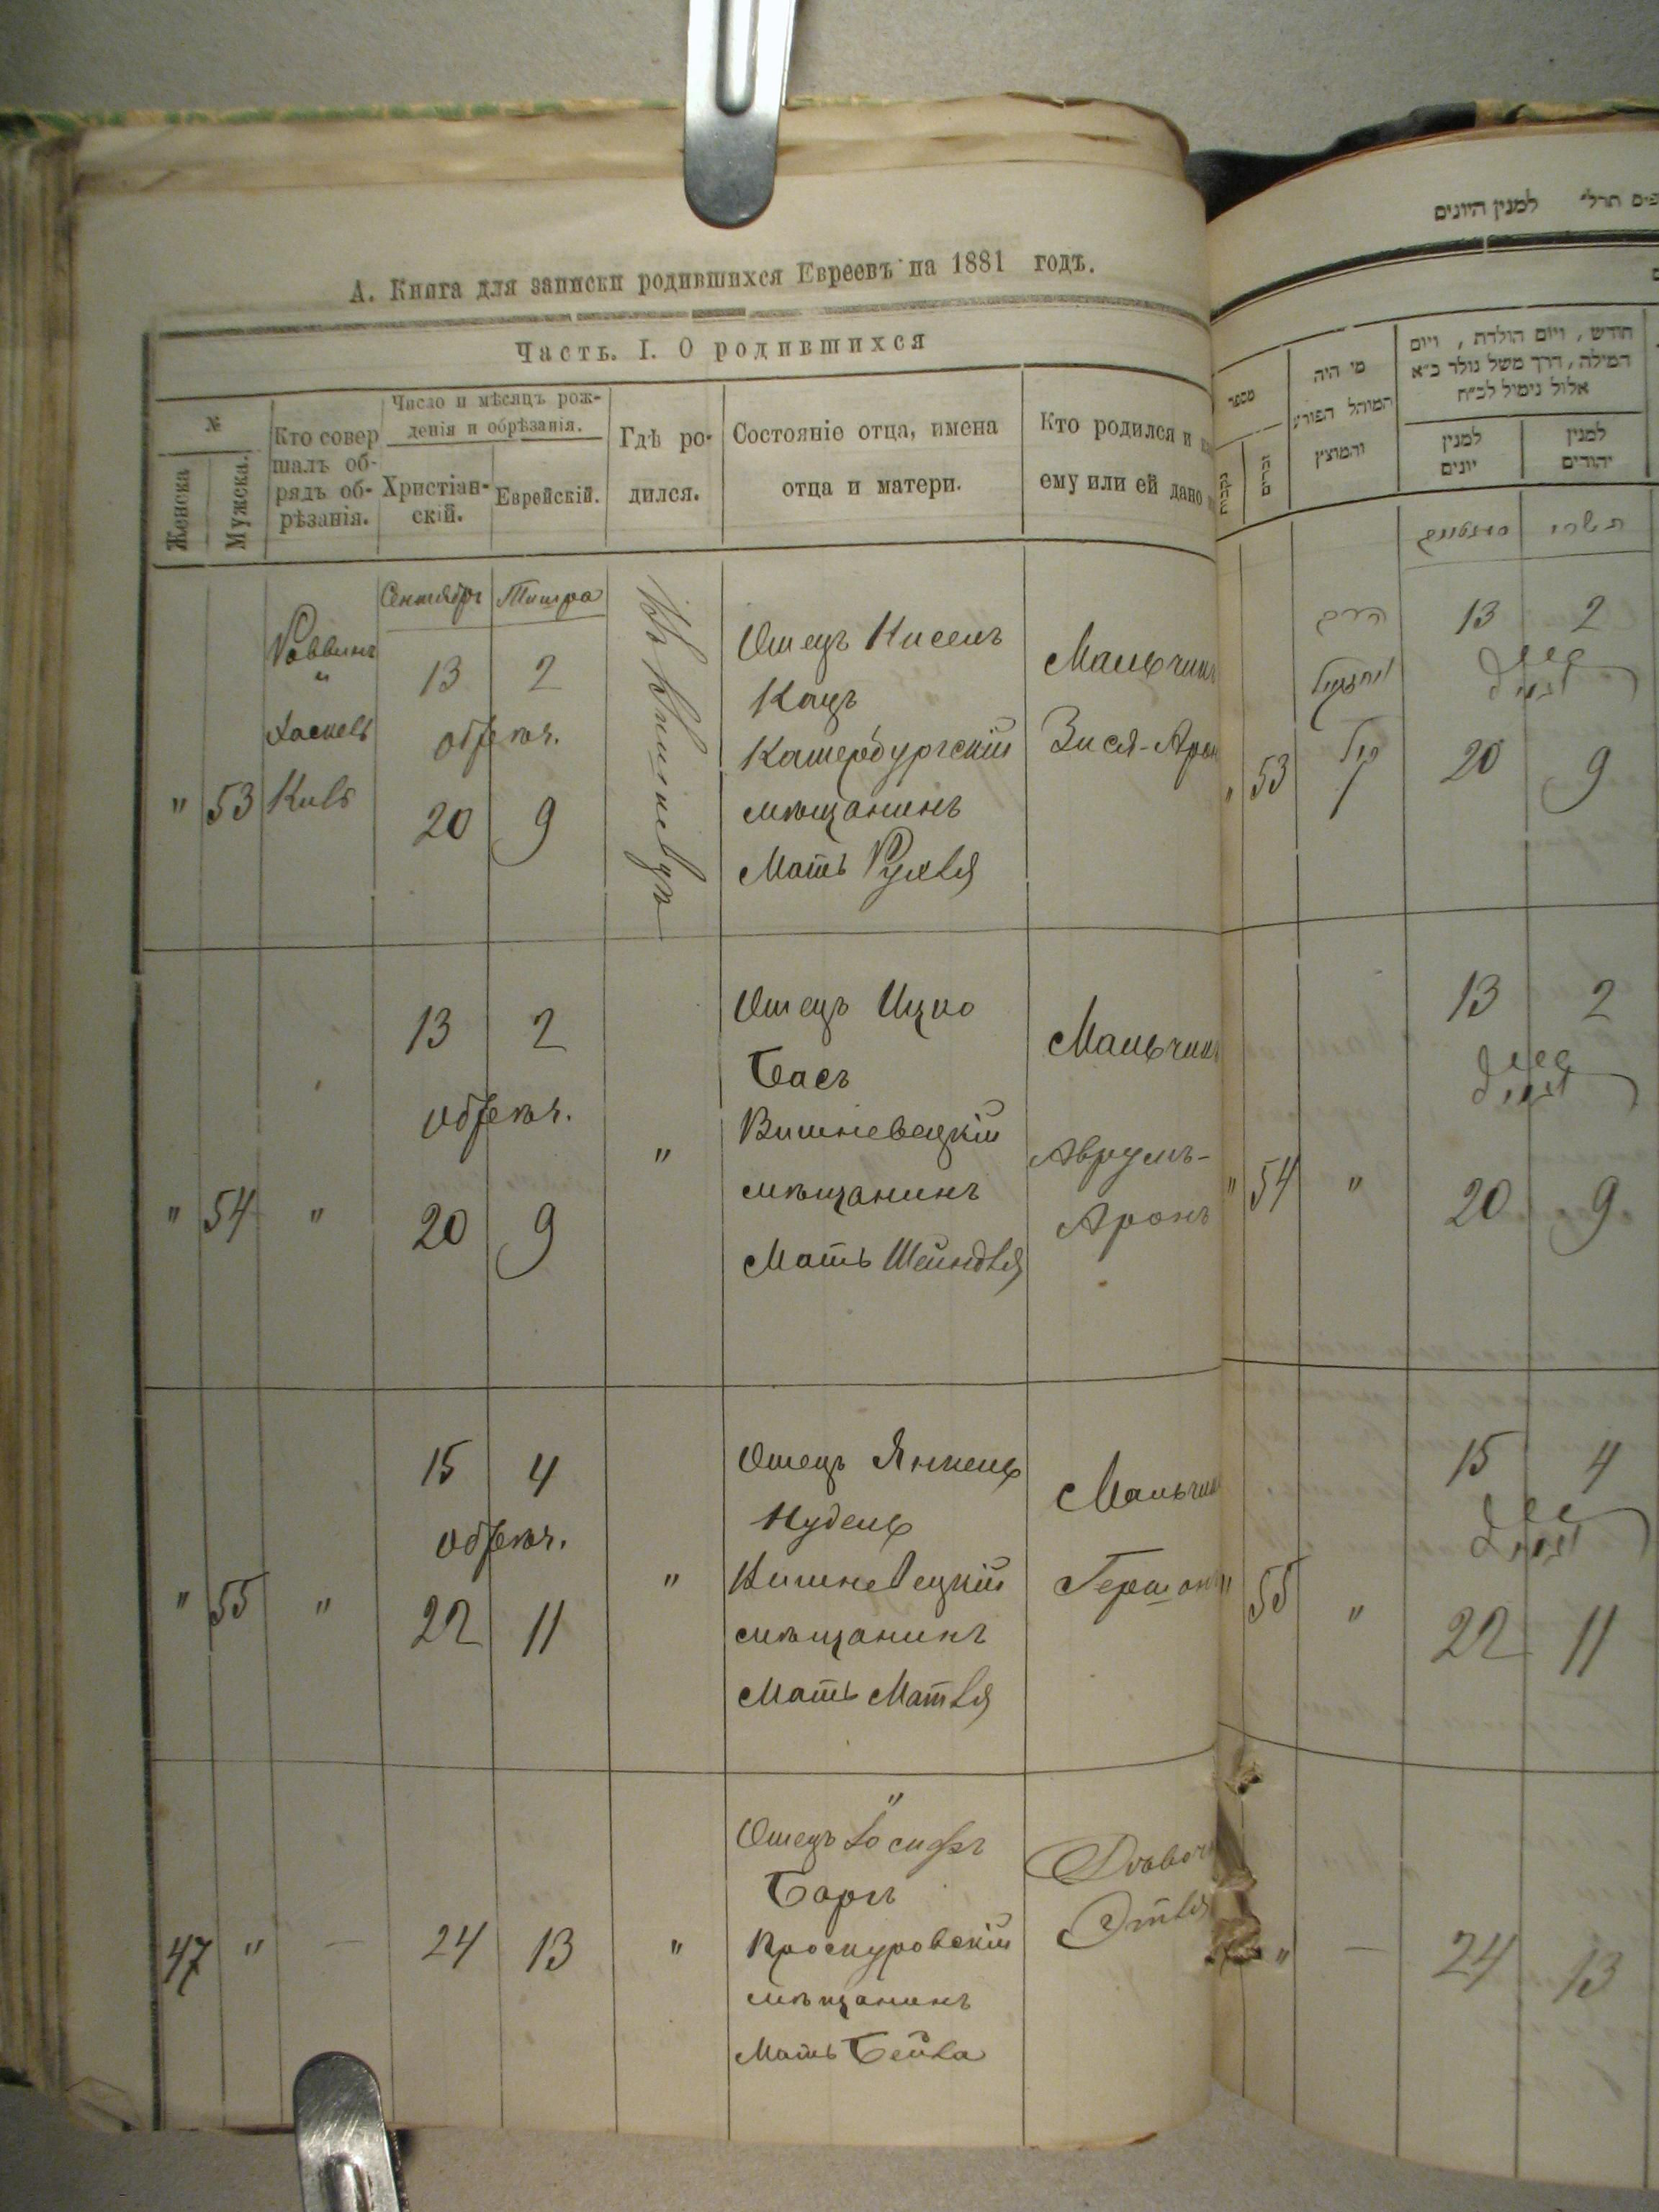 А. Книга для записки родившихся Евреевъ на 1881 годъ.
Часть. I. О родившихся
№
Женска
Мужска.
Кто совер
шалъ об-
рядъ об-
рѣзанія.
Число и мѣсяцъ рож-
денія и обрѣзанія.
Христіан-
скій.
Еврейскій.
Гдѣ ро-
дился.
Состояніе отца, имена
отца и матери.
Кто родился и
ему или ей дано
Сентября Тишра
" 53
Раввинъ
"
Хаскель
13 2
обрѣзан.
20 9
Отецъ Кисель
Кацъ
Катербургскій
мѣщанинъ
Мать Рухля
Мальчикъ
Зися-Аронъ
" 54 "
13 2
обрѣзан.
20 9
"
Отецъ Ицко
Басъ
Вишневецкій
мѣщанинъ
Мать Шейндля
Мальчикъ
Аврумъ-
Аронъ
" 55 "
15 4
обрѣзан.
22 11
"
Отецъ Янкель
Нудель
Вишневецкій
мѣщанинъ
Мать Матля
Мальчикъ
Гершонъ
47 " —
24 13
"
"
Отецъ Іосифъ
Баргъ
Проскуровскій
мѣщанинъ
Мать Бейла
Этля
למנין היונים
מספר
נקבות
זכרים
מי היה
המוהל הפורע
והמוצץ
חודש, ויום הולדת, ויום
המילה, דרך משל נולד כ״א
אלול נימול לכ״ח
למנין
יונים
למנין
יהודים
תשרי
" 53
13 2
20 9
" 54 "
13 2
20 9
" 55 "
15 4
22 11
" —
24 13